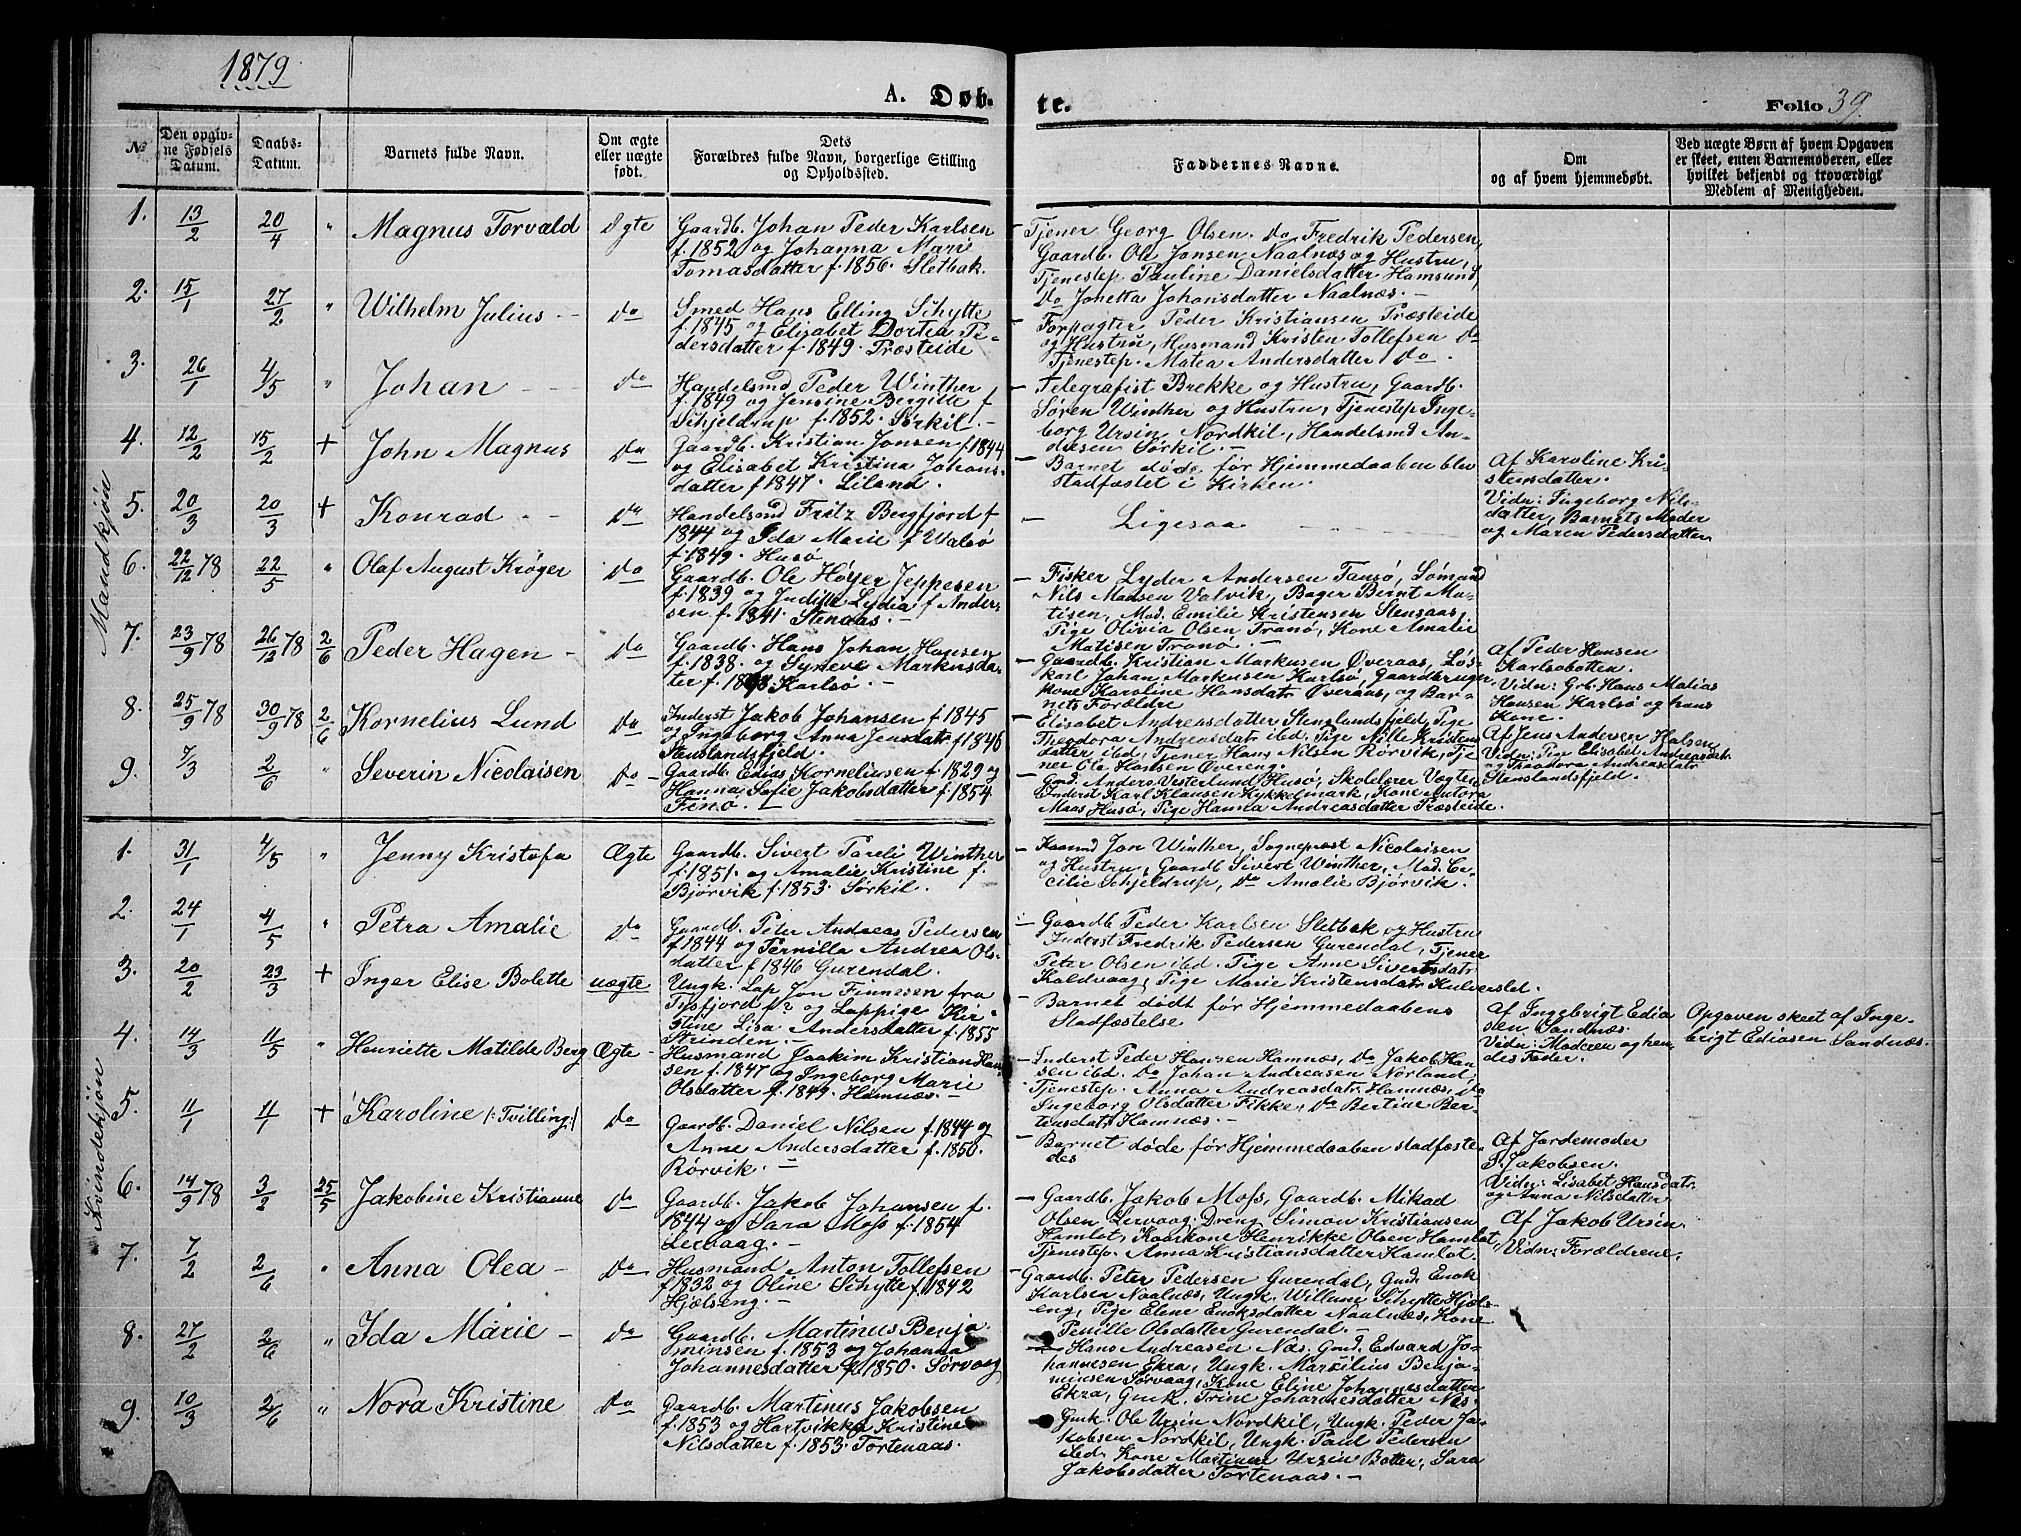 1879
A. Døb-
te.
Folio 39.
№
Den opgiv-
ne Fødsels
Datum.
Daabs-
Datum.
Barnets fulde Navn.
Om ægte
eller uægte
født.
Dets
Forældres fulde Navn, borgerlige Stilling
og Opholdssted.
Faddernes Navne.
Om
og af hvem hjemmedøbt.
Ved uægte Børn af hvem Opgaven
er skeet, enten Barnemoderen, eller
hvilket bekjendt og troværdigt
Medlem af Menigheden.
Mandkjøn
1. 13/2 20/4 " Magnus Torvald Ægte
Gaardb. Johan Peder Karlsen
f. 1852 og Johanna Mari
Tomasdatter f. 1856. Sletbak.
Tjener Georg Olsen. Do Fredrik Pedersen,
Gaardb. Ole Jonsen Naalnæs og Hustru,
Tjenestep. Pauline Danielsdatter Hamsund,
Do Jonetta Johansdatter Naalnæs. —
2. 15/1 27/2 " Wilhelm Julius — Do
Smed Hans Elling Schytte
f. 1845 og Elisabet Dortea Pe-
dersdatter f. 1849. Præsteide
— Forpagter Peder Kristiansen Præsteide
og Hustru, Husmand Kristen Tollefsen Do
Tjenestep. Matea Andersdatter Do.
3. 26/1 4/5 " Johan — Do
Handelsmd Peder Winther
f. 1849 og Jensine Bergitte f
Schjeldrup f. 1852. Sørkil. —
— Telegrafist Brekke og Hustru, Gaardb.
Søren Winther og Hustru, Tjenestep. Inge-
borg Ursin Nordkil, Handelsmd An-
dresen Sørkil. —
4. 12/2 15/2 + John Magnus Do
Gaardb. Kristian Jonsen f. 1844
og Elisabet Kristina Johans-
datter f 1847. Liland.
— Barnet døde før Hjemmedaaben blev
stadfæstet i Kirken.
Af Karoline Kri-
stensdatter.
Vidn: Ingeborg Nils-
datter, Barnets Moder
og Maren Pedersdatter
5. 20/3 20/3 + Konrad — Do
Handelsmd Fritz Bergfjord f
1844 og Ida Marie f Walsø
f. 1849. Husø
— Ligesaa
6. 22/12 78 22/5 " Olaf August Krøger Do
Gaardb. Ole Høyer Jeppesen
f. 1839 og Judithe Lydia f Ander-
sen f. 1841 Stenaas. —
— Fisker Lyder Andersen Tansø, Sømand
Nils Madsen Valvik, Bager Bernt Ma-
tisen, Mad. Emilie Kristensen Stensaas,
Pige Olivia Olsen Tranø, Kone Amalie
Matisen Tranø. —
7. 23/9 78 26/12 78 2/6 Peder Hagen — Do
Gaardb. Hans Johan Hansen
f. 1838. og Syneve Markusda-
ter f. Karlsø. —
— Gaardb. Kristian Markusen Øveraas, Løs-
karl Johan Markusen Karlsø, Gaardbruger-
kone Karoline Hansdatr Øveraas, og Bar-
nets Forældre
Af Peder Hansen
Karlsøbotten.
Vidn: Grb. Hans Matias
Hansen Karlsø og hans
Kone.
8. 25/9 78 30/9 78 2/6 Kornelius Lund Do
Inderst Jakob Johansen f. 1845
og Ingeborg Anna Jensdatr f. 1846
Stenslandsfjeld.
— Elisabet Andreasdatter Stenglandsfjeld, Pige
Theodora Andreasdatr ibd. Pige Nille Kristens
datter ibd. Tjener Hans Nilsen Rørvik, Tje
ner Ole Hansen Øvereng.
Af Jens Andersen Halsen
Vidn: Pige Elisabet Andreasdatr
og Theodora Andreasdatr
Stenslandsfjeld.
9. 7/3 2/6 " Severin Nicolaisen Do —
Gaardb. Edias Korneliusen f. 1829 og
Hanna Sofie Jakobsdatter f. 1854.
Finø. —
— Gmd. Anders Vesterlund Husø, Skolelærer Vegter
Inderst Karl Klausen Kykkelmark, Kone Aurora
Maas Husø, Pige Hanna Andreasdatter Præsteide.
Kvindekjøn
1. 31/1 4/5 " Jenny Kristofa Ægte
Gaardb. Sivert Pareli Winther
f. 1851. og Amalie Kristine f.
Bjørvik f. 1853. Sørkil.
— Kaarmd Jon Winther, Sognepræst Nicolaisen
og Hustru, Gaardb Sivert Winther, Mad. Ce-
cilie Schjeldrup, Do Amalie Bjørvik.
2. 24/1 4/5 " Petra Amalie Do
Gaardb. Peter Andreas Pedersen
f. 1844 og Pernilla Andrea Ols-
datter f. 1846 Gurendal.
— Gaardb Peder Karlsen Sletbak og Hustru
Inderst Fredrik Pedersen Gurendal, Tjener
Peter Olsen ibd. Pige Anne Sivertsdatr
Kaldvaag, Pige Marie Kristensdatr Kulverslet.
3. 20/2 23/3 + Inger Elise Bolette uægte
Ungk. Lap Jon Finnesen fra
Tysfjord No og Lappige Kir-
stine Lisa Andersdatter f. 1855
Strinden. —
— Barnet dødt før Hjemmedaabens
Stadfæstelse
Af Ingebrigt Edia
sen Sandnæs.
Vidn: Moderen og hen-
des Fader.
Opgaven skeet af Inge-
brigt Ediasen Sandnæs.
4. 14/3 11/5 " Henriette Matilde Berg Ægte —
Husmand Joakim Kristian Han-
sen f. 1847 og Ingeborg Marie
Olsdatter f. 1849. Hamnæs. —
— Inderst Peder Hansen Hamnæs, Do Jakob Han
sen ibd. Do Johan Andreasen Norland,
Tjenestep. Anna Andreasdatr. Hamnæs, Do
Ingeborg Olsdatter Fikke, Do Bertine Ber-
tensdatr Hamnæs. —
5. 11/1 11/1 + Karoline (: Tvilling :) Do
Gaardb. Daniel Nilsen f. 1844 og
Anne Andersdatter f. 1850.
Rørvik. —
— Barnet døde før Hjemmedaaben stadfæste-
des
Af Jordemoder
S. Jakobsen.
Vidn: Lisabet Hansdatr
og Anna Nilsdatter
6. 14/9 78 3/2 25/5 Jakobine Kristianne Do
Gaardb. Jakob Johansen f.
1844 og Sara Moss f. 1854
Lervaag. —
— Gaardb. Jakob Moss, Gaardb. Mikal
Olsen Lervaag, Dreng Simon Kristiansen
Hamlot, Kaarkone Henrikke Olsen Hamlot,
Tjenestep. Anna Kristiansdatter Hamlot.
Af Jakob Ursin.
Vidn: Forældrene.
7. 7/2 2/6 " Anna Olea — Do
Husmand Anton Tollefsen
f. 1832 og Oline Schytte f. 1842
Hjelseng. —
— Gaardb. Peter Pedersen Gurendal, Gmd. Enok
Karlsen Naalnæs, Ungk. Willum Schytte Hjels-
eng, Pige Elene Enoksdatter Naalnæs, Kone
Pernille Olsdatter Gurendal. —
8. 27/2 2/6 " Ida Marie — Do
Gaardb. Martinus Benja
minsen f. 1853 og Johanna
Johannesdatter f. 1850. Sørvaag
— Hans Andreasen Næs. Gmd. Edvard Jo-
hannesen Ekra, Ungk. Marsilius Benja-
minsen Sørvaag, Kone Eline Johannesdatter
Ekra, Gmk. Trine Johannesdatter Næs.
9. 10/3 2/6 " Nora Kristine Do
Gaardb. Martinus Jakobsen
f. 1853 og Hartvikka Kristine
Nilsdatter f. 1853. Tortenaas.
Gmk. Ole Ursin Nordkil, Ungk. Peder Ja-
kobsen Nordkil, Ungk. Paul Pedersen
ibd. Kone Martinne Ursin Botten, Sara
Jakobsdatter Tortenaas. —